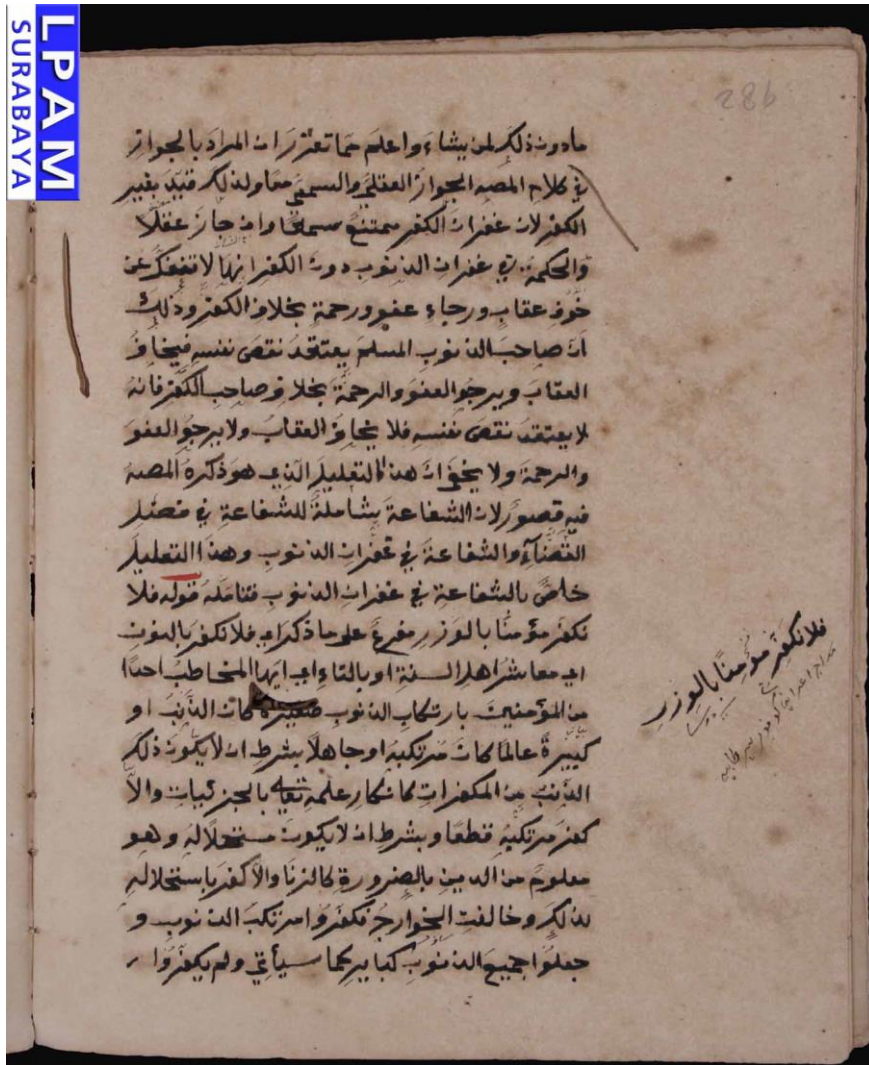 LPAM
SURABAYA
286
مادون ذلك لمن يشاء واعلم مما تقرر ان المراد بالجواز
في كلام المصه الجواز العقلي والسمعي معا ولذلك قيد بغير
الكفر لان غفران الكفر ممتنع سمعا وان جاز عقلا
والحكمة في غفران الذنوب دون الكفر انها لا تنفك عن
خوف عقاب ورجاء عفو ورحمة بخلاف الكفر وذلك
ان صاحب الذنوب المسلم يعتقد نقص نفسه فيخاف
العقاب ويرجو العفو والرحمة بخلاف صاحب الكفر فانه
لا يعتقد نقص نفسه فلا يخاف العقاب ولا يرجو العفو
والرحمة ولا يخفى ان هذا التعليل الذي هو ذكره المصه
فيه قصور لان الشفاعة شاملة للشفاعة في فصل
القضاء والشفاعة في غفران الذنوب وهذا التعليل
خاص بالشفاعة في غفران الذنوب فتأمله قوله فلا
نكفر مؤمنا بالوزر مفرع على ما ذكر اي فلا نكفر بالنون
اي معاشر اهل السنة او بالتاء اي ايها المخاطب احدا
من المؤمنين بارتكاب الذنوب صغيرة كان الذنب او
كبيرة عالما كان مرتكبه او جاهلا بشرط ان لا يكون ذلك
الذنب من المكفرات كانكار علمه تعالى بالجزئيات والا
كفر مرتكبه قطعا وبشرط ان لا يكون مستحلا له وهو
معلوم من الدين بالضرورة كالزنا والا كفر باستحلاله
لذلك وخالفت الخوارج فكفروا مرتكب الذنوب و
جعلوا جميع الذنوب كباير كما سيأتي ولم يكفروا
فلا نكفر مؤمنا بالوزر